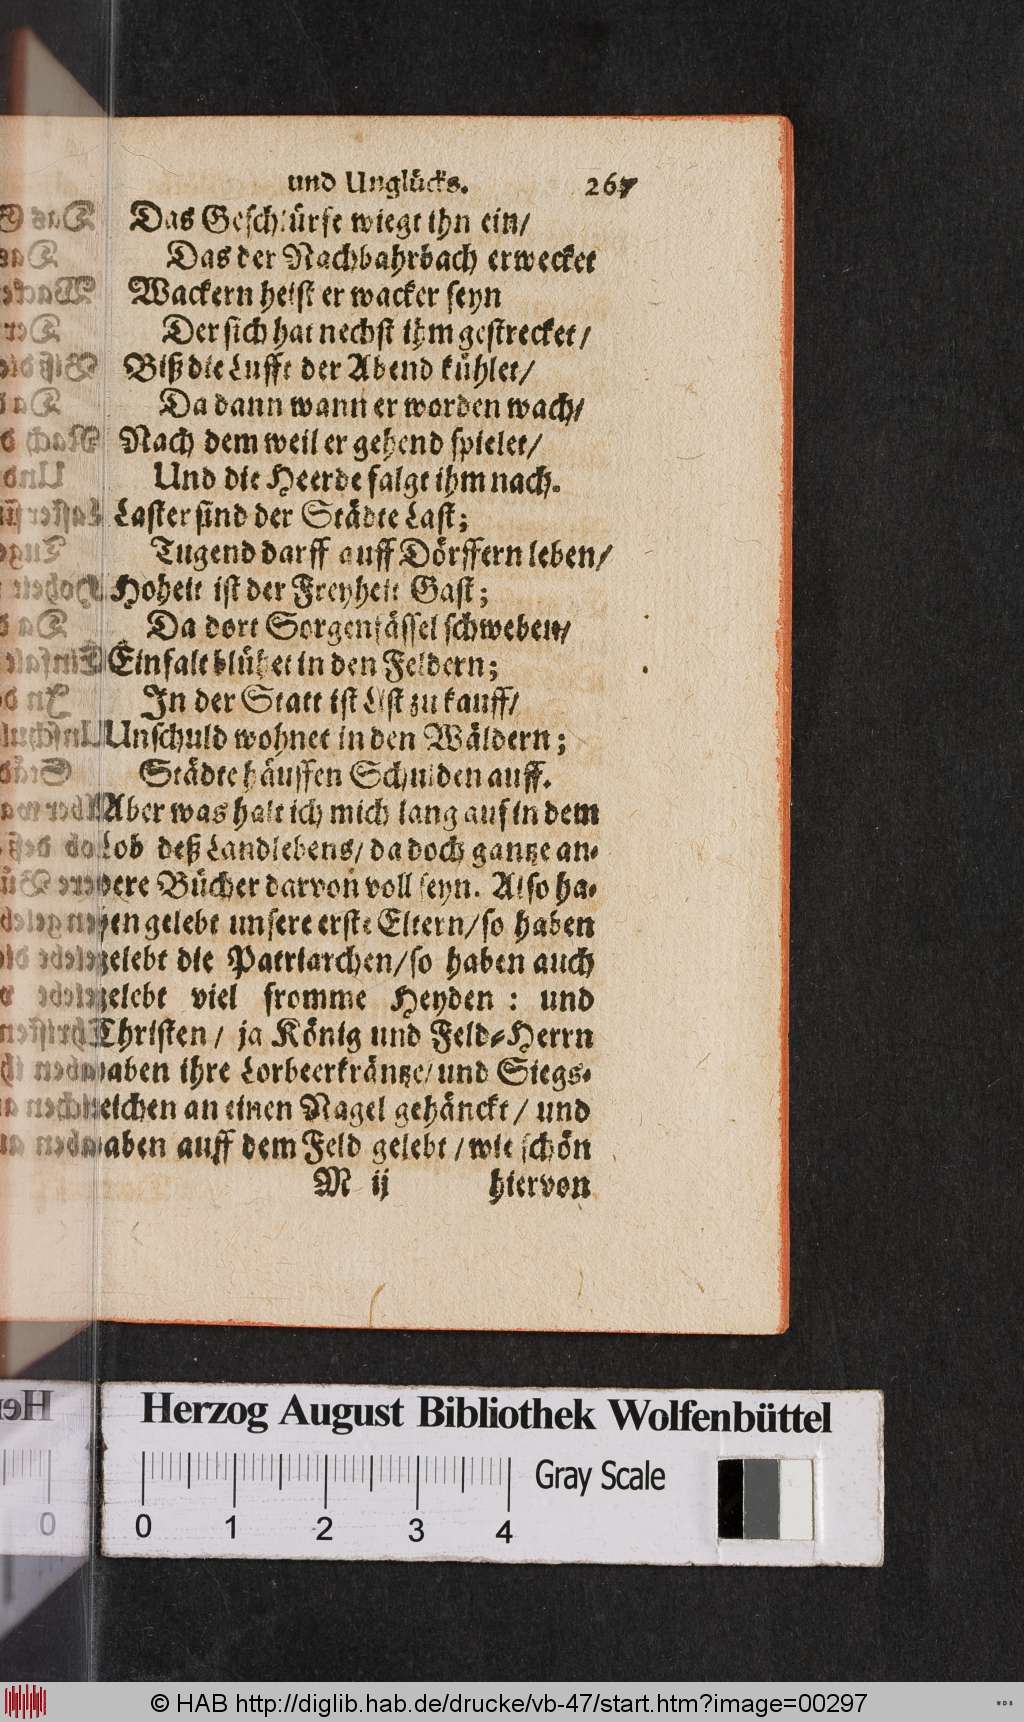 und Unglücks. 267
Das Geschlürfe wiegt ihn ein/
Das der Nachbahrbach erwecket
Wackern heist er wacker seyn
Der sich hat nechst ihm gestrecket/
Biß die Lufft der Abend kühlet/
Da dann wann er worden wach/
Nach dem weil er gehend spielet/
Und die Heerde falgt ihm nach.
Laster sind der Städte Last;
Tugend darff auff Dörffern leben/
Hoheit ist der Freyheit Gast;
Da dort Sorgenfässel schweben/
Einfalt blühet in den Feldern;
In der Statt ist List zu kauff/
Unschuld wohnet in den Wäldern;
Städte häuffen Schulden auff.
Aber was halt ich mich lang auf in dem
Lob deß Landlebens/ da doch gantze an-
dere Bücher darvon voll seyn. Also ha-
ben gelebt unsere erste Eltern/ so haben
gelebt die Patriarchen/ so haben auch
gelebt viel fromme Heyden : und
Christen/ ja König und Feld-Herrn
haben ihre Lorbeerkräntze/ und Siegs-
zeichen an einen Nagel gehänckt/ und
haben auff dem Feld gelebt/ wie schön
M ij hiervon
Herzog August Bibliothek Wolfenbüttel
Gray Scale
0 1 2 3 4
© HAB http://diglib.hab.de/drucke/vb-47/start.htm?image=00297